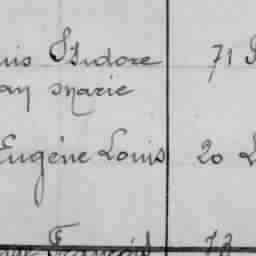 uis Isidore 71
an Marie
Eugène Louis 20
François 73